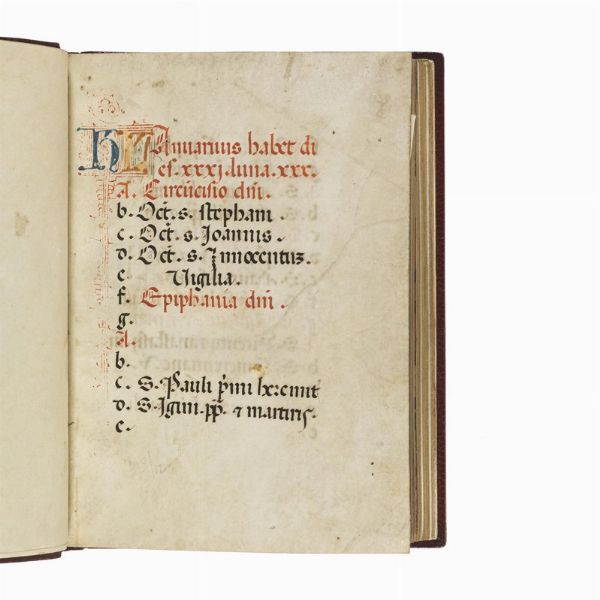 KL Januarius habet di
es .xxxj. luna .xxx.
A. Circũcisio dñi.
b. Oct̃. s. stephani
c. Oct̃. s. Joannis.
d. Oct̃. s. Jnnocentuʒ.
e. Vigilia.
f. Epiphania dñi.
g.
A.
b.
c. S. Pauli p̃mi heremit
d. S. Igini .pp̃. ⁊ martiris.
e.